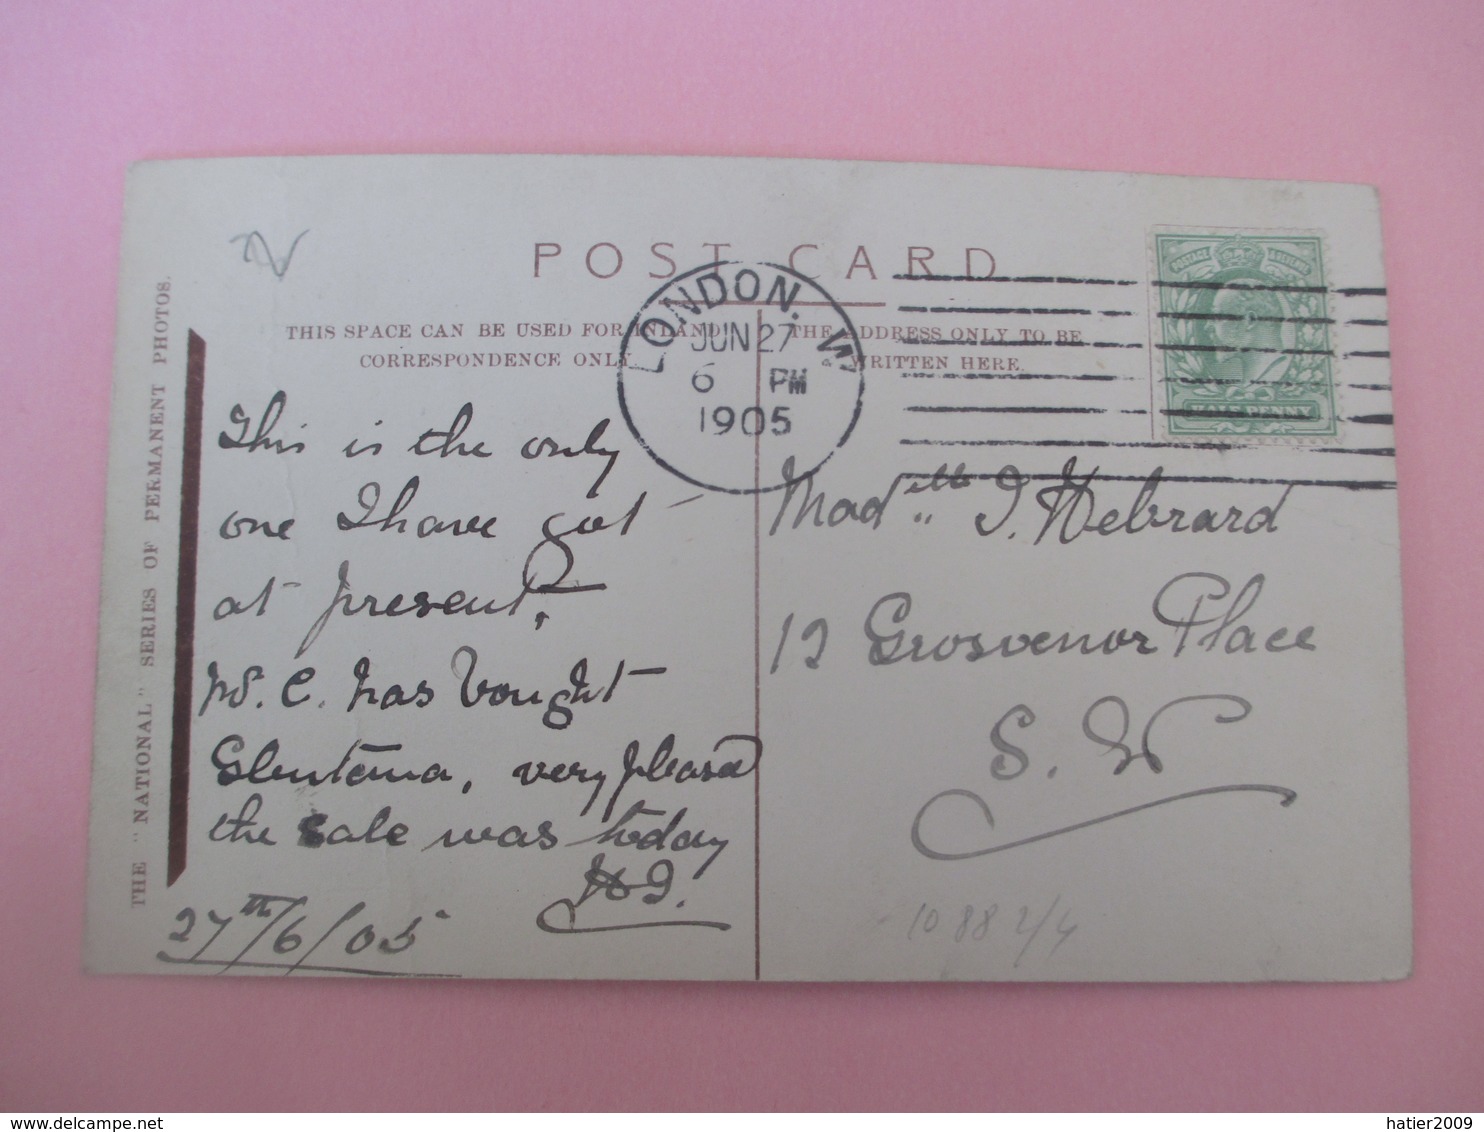 POST CARD
THIS SPACE CAN BE USED FOR INLAND
CORRESPONDENCE ONLY.
THE ADDRESS ONLY TO BE
WRITTEN HERE.
THE "NATIONAL" SERIES OF PERMANENT PHOTOS.
LONDON. W
JUN 27
6 PM
1905
POSTAGE & REVENUE
HALF PENNY
This is the only
one I have got
at present.
W. C. has bought
Glentema, very pleased
the sale was today
H.J.
27th/6/05
Madelle I. Hebrard
12 Grosvenor Place
S. W
10 88 2/4
hatier2009